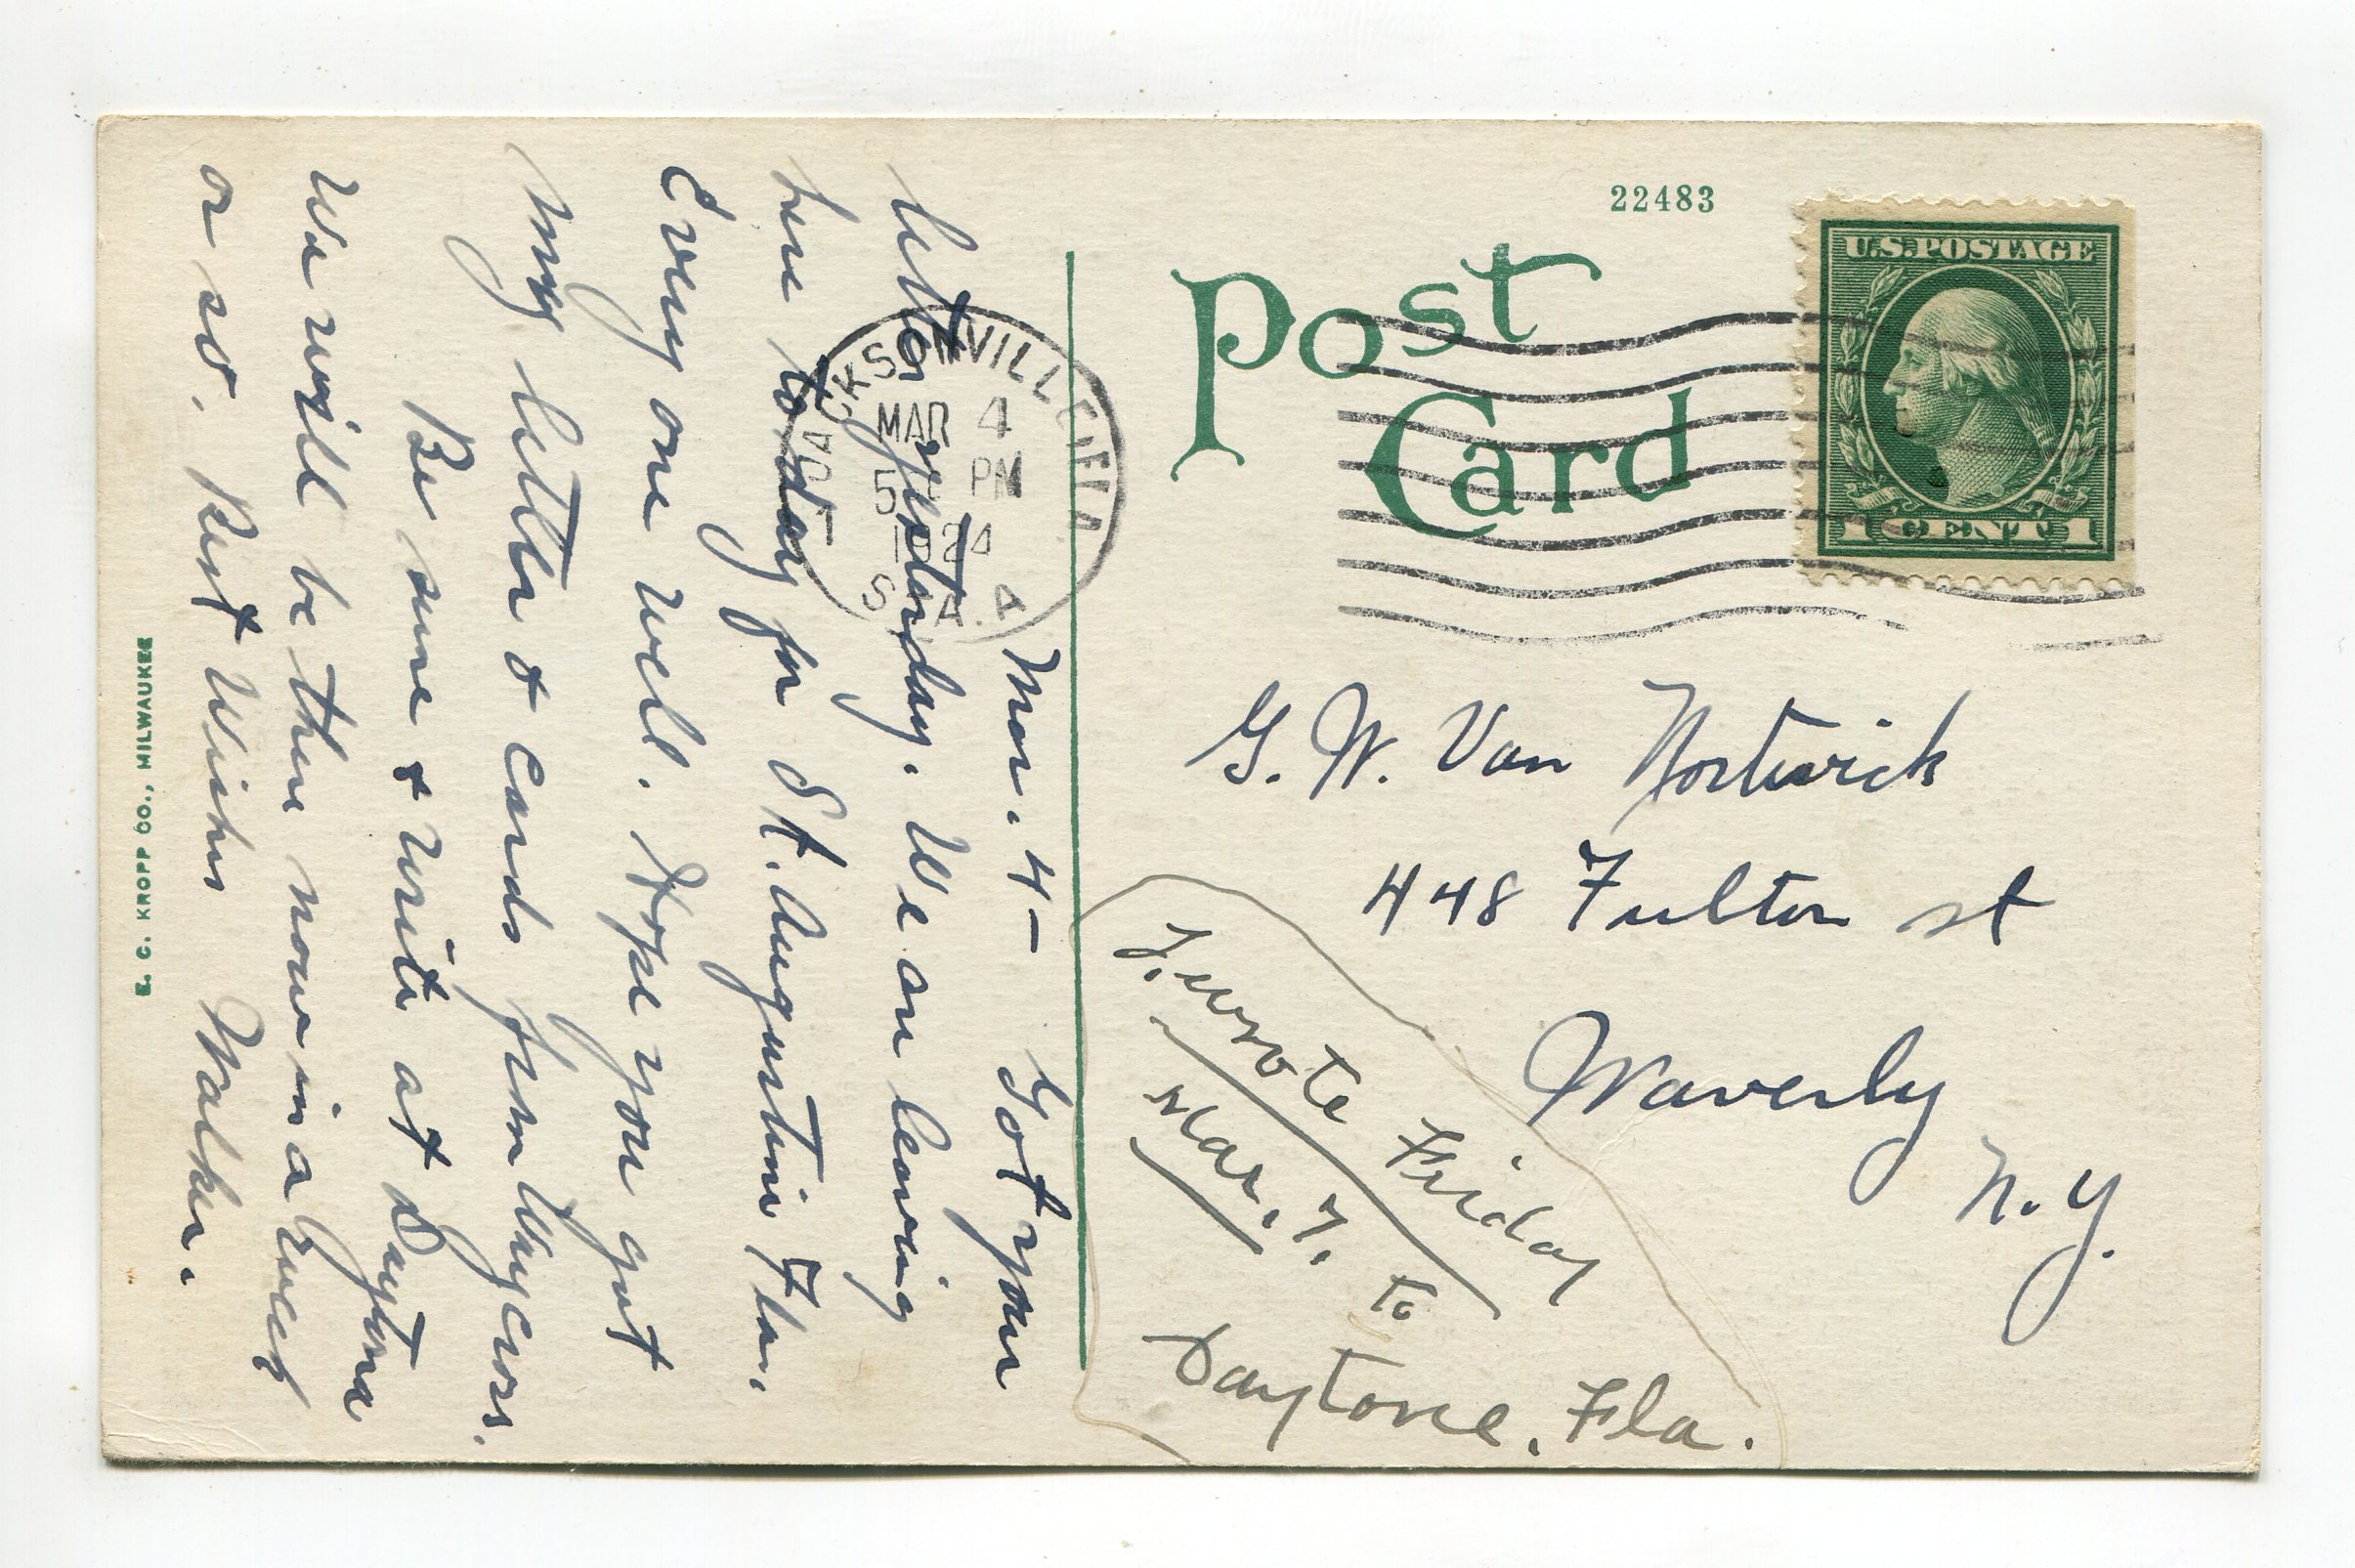 22483
U.S. POSTAGE
1 CENT 1
Post
Card
JACKSONVILLE, FLA.
MAR 4
PM
1924
G. W. Van Nortwick
448 Fulton st
Waverly
N. Y.
I wrote Friday
Mar. 7. to
Daytone, Fla.
Mar. 4 - Got your
letter yesterday. We are leaving
here today for St. Augustine Fla.
Every one well. Hope you got
my letter & cards from Waycross.
Be sure & write at Daytona
We will be there now in a week
or so. Best Wishes Walker.
E. C. KROPP CO., MILWAUKEE